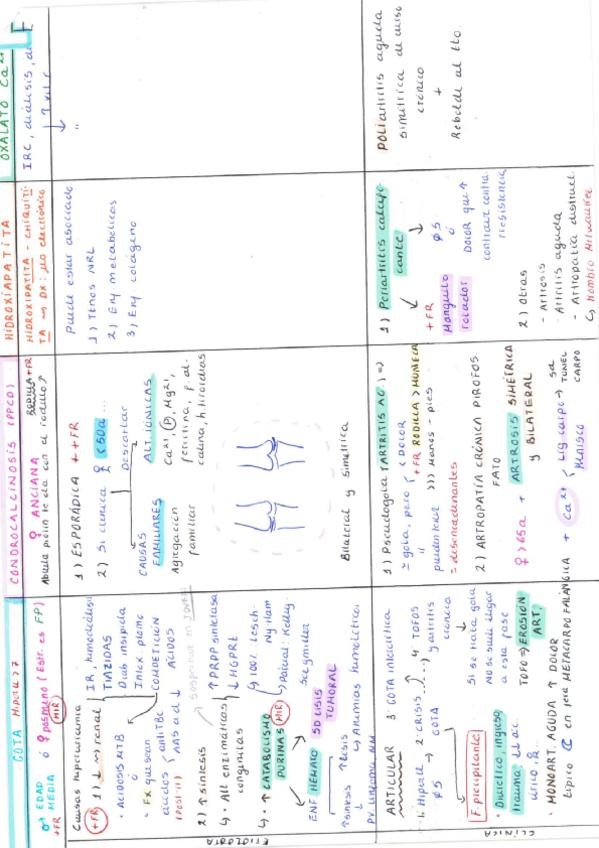 GOTA
♂ EDAD MEDIA ó ♀ POSMENO (Estr. es FP)
+FR
MIR
Causas hiperuricemia
1) ↓ renal
+FR
IR, hemoderivados
TIAZIDAS
Diab insípida
Intox plomo
COMPETICIÓN ÁCIDOS
• ACIDOSIS MTB
ó
• FX que sean ácidos
antiTBC
2) ↑ síntesis
• Alt enzimáticas congénitas
↑ PRPP sintetasa
↓ HGPRt
100%: Lesch-Nyhan
Parcial: Kelley-Seegmiller
• ↑ CATABOLISMO PURINAS
MIR
ENF HEMATO
SD LISIS TUMORAL
↑ síntesis
↑ lisis
↳ Anemias hemolíticas
ETIOLOGÍA
CONDROCALCINOSIS (PPCD)
♀ ANCIANA
RODILLA +FR
1) ESPORÁDICA ++FR
2) Si clínica ♀ <50a...
Descartar
CAUSAS FAMILIARES
Agregación familiar
ALT. IÓNICAS
Ca²⁺, P, Mg²⁺,
ferritina, f. alcalina, h. tiroideas
Bilateral y simétrica
HIDROXIAPATITA
HIDROXIPATITA - CHIQUITITA → DX: μo electrónico
Puede estar asociado
1) Tenos NRL
2) Enf metabólicas
3) Enf colágeno
OXALATO Ca²⁺
IRC, diálisis,
CLÍNICA
ARTICULAR
1. Hiperu
øS
2. CRISIS GOTA
3. GOTA INTERCRÍTICA
4. TOFOS y artritis crónica
Si se trata gota NO se suele llegar a esta fase
TOFO → EROSIÓN ART.
F. precipitante
• Diurético, ingreso
trauma
• MONOART. AGUDA ↑ DOLOR
típico en 1era METACARPO FALÁNGICA
1) Pseudogota (ARTRITIS AG.) ⇒
≃ gota, pero
< DOLOR
+FR RODILLA > MUÑECA
>>> Manos - pies
= desencadenantes
2) ARTROPATÍA CRÓNICA PIROFOSFATO
♀ >65a + ARTROSIS SIMÉTRICA y BILATERAL
+ Ca²⁺
Lig carpo → sd TUNEL CARPO
MENISCO
1) Periartritis calcificante
+FR
Manguito rotador
øS
ó
DOLOR que ↑ contraer contra resistencia
2) Otras
- Artrosis
- Artritis aguda
- Artropatía destruct.
↳ Hombro Milwaukee
POLIartritis aguda
simétrica de curso
crónico
+
Rebelde al tto.